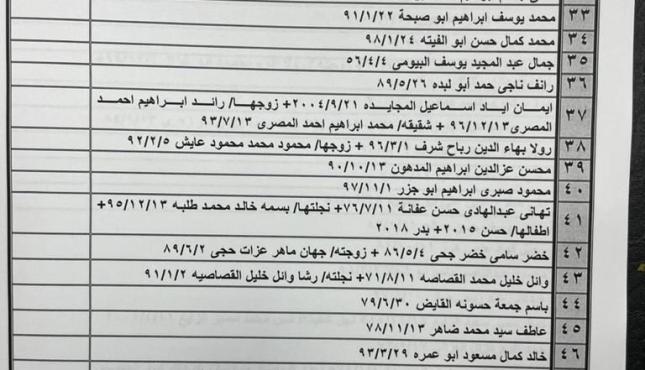 ٣٣ محمد يوسف ابراهيم ابو صبحة ٩١/١/٢٢
٣٤ محمد كمال حسن ابو الفيته ٩٨/١/٢٤
٣٥ جمال عبد المجيد يوسف البيومى ٥٦/٤/٤
٣٦ رانف ناجى حمد أبو لبده ٨٩/٥/٢٦
٣٧ ايمان اياد اسماعيل المجايده ٢٠٠٤/٩/٢١+ زوجها/ رائد ابراهيم احمد
المصرى٩٦/١٢/١٣ + شقيقه/ محمد ابراهيم احمد المصرى ٩٣/٧/١٣
٣٨ رولا بهاء الدين رباح شرف ٩٦/٣/١ + زوجها/ محمود محمد محمود عايش ٩٢/٢/٥
٣٩ محسن عزالدين ابراهيم المدهون ٩٠/١٠/١٣
٤٠ محمود صبرى ابراهيم ابو جزر ٩٧/١١/١
٤١ تهانى عبدالهادى حسن عفانة ٧٦/٧/١١+ نجلتها/ بسمه خالد محمد طلبه ٩٥/١٢/١٣+
اطفالها/ حسن ٢٠١٥+ بدر ٢٠١٨
٤٢ خضر سامى خضر جحى ٨٦/٥/٤ + زوجته/ جهان ماهر عزات حجى ٨٩/٦/٢
٤٣ وائل خليل محمد القصاصه ٧١/٨/١١+ نجلته/ رشا وائل خليل القصاصيه ٩١/١/٢
٤٤ باسم جمعة حسونه القايض ٧٩/٦/٣٠
٤٥ عاطف سيد محمد ضاهر ٧٨/١١/١٣
٤٦ خالد كمال مسعود ابو عمره ٩٣/٣/٢٩